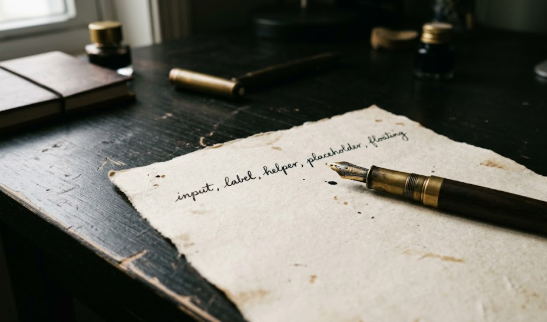 input, label, helper, placeholder, floating